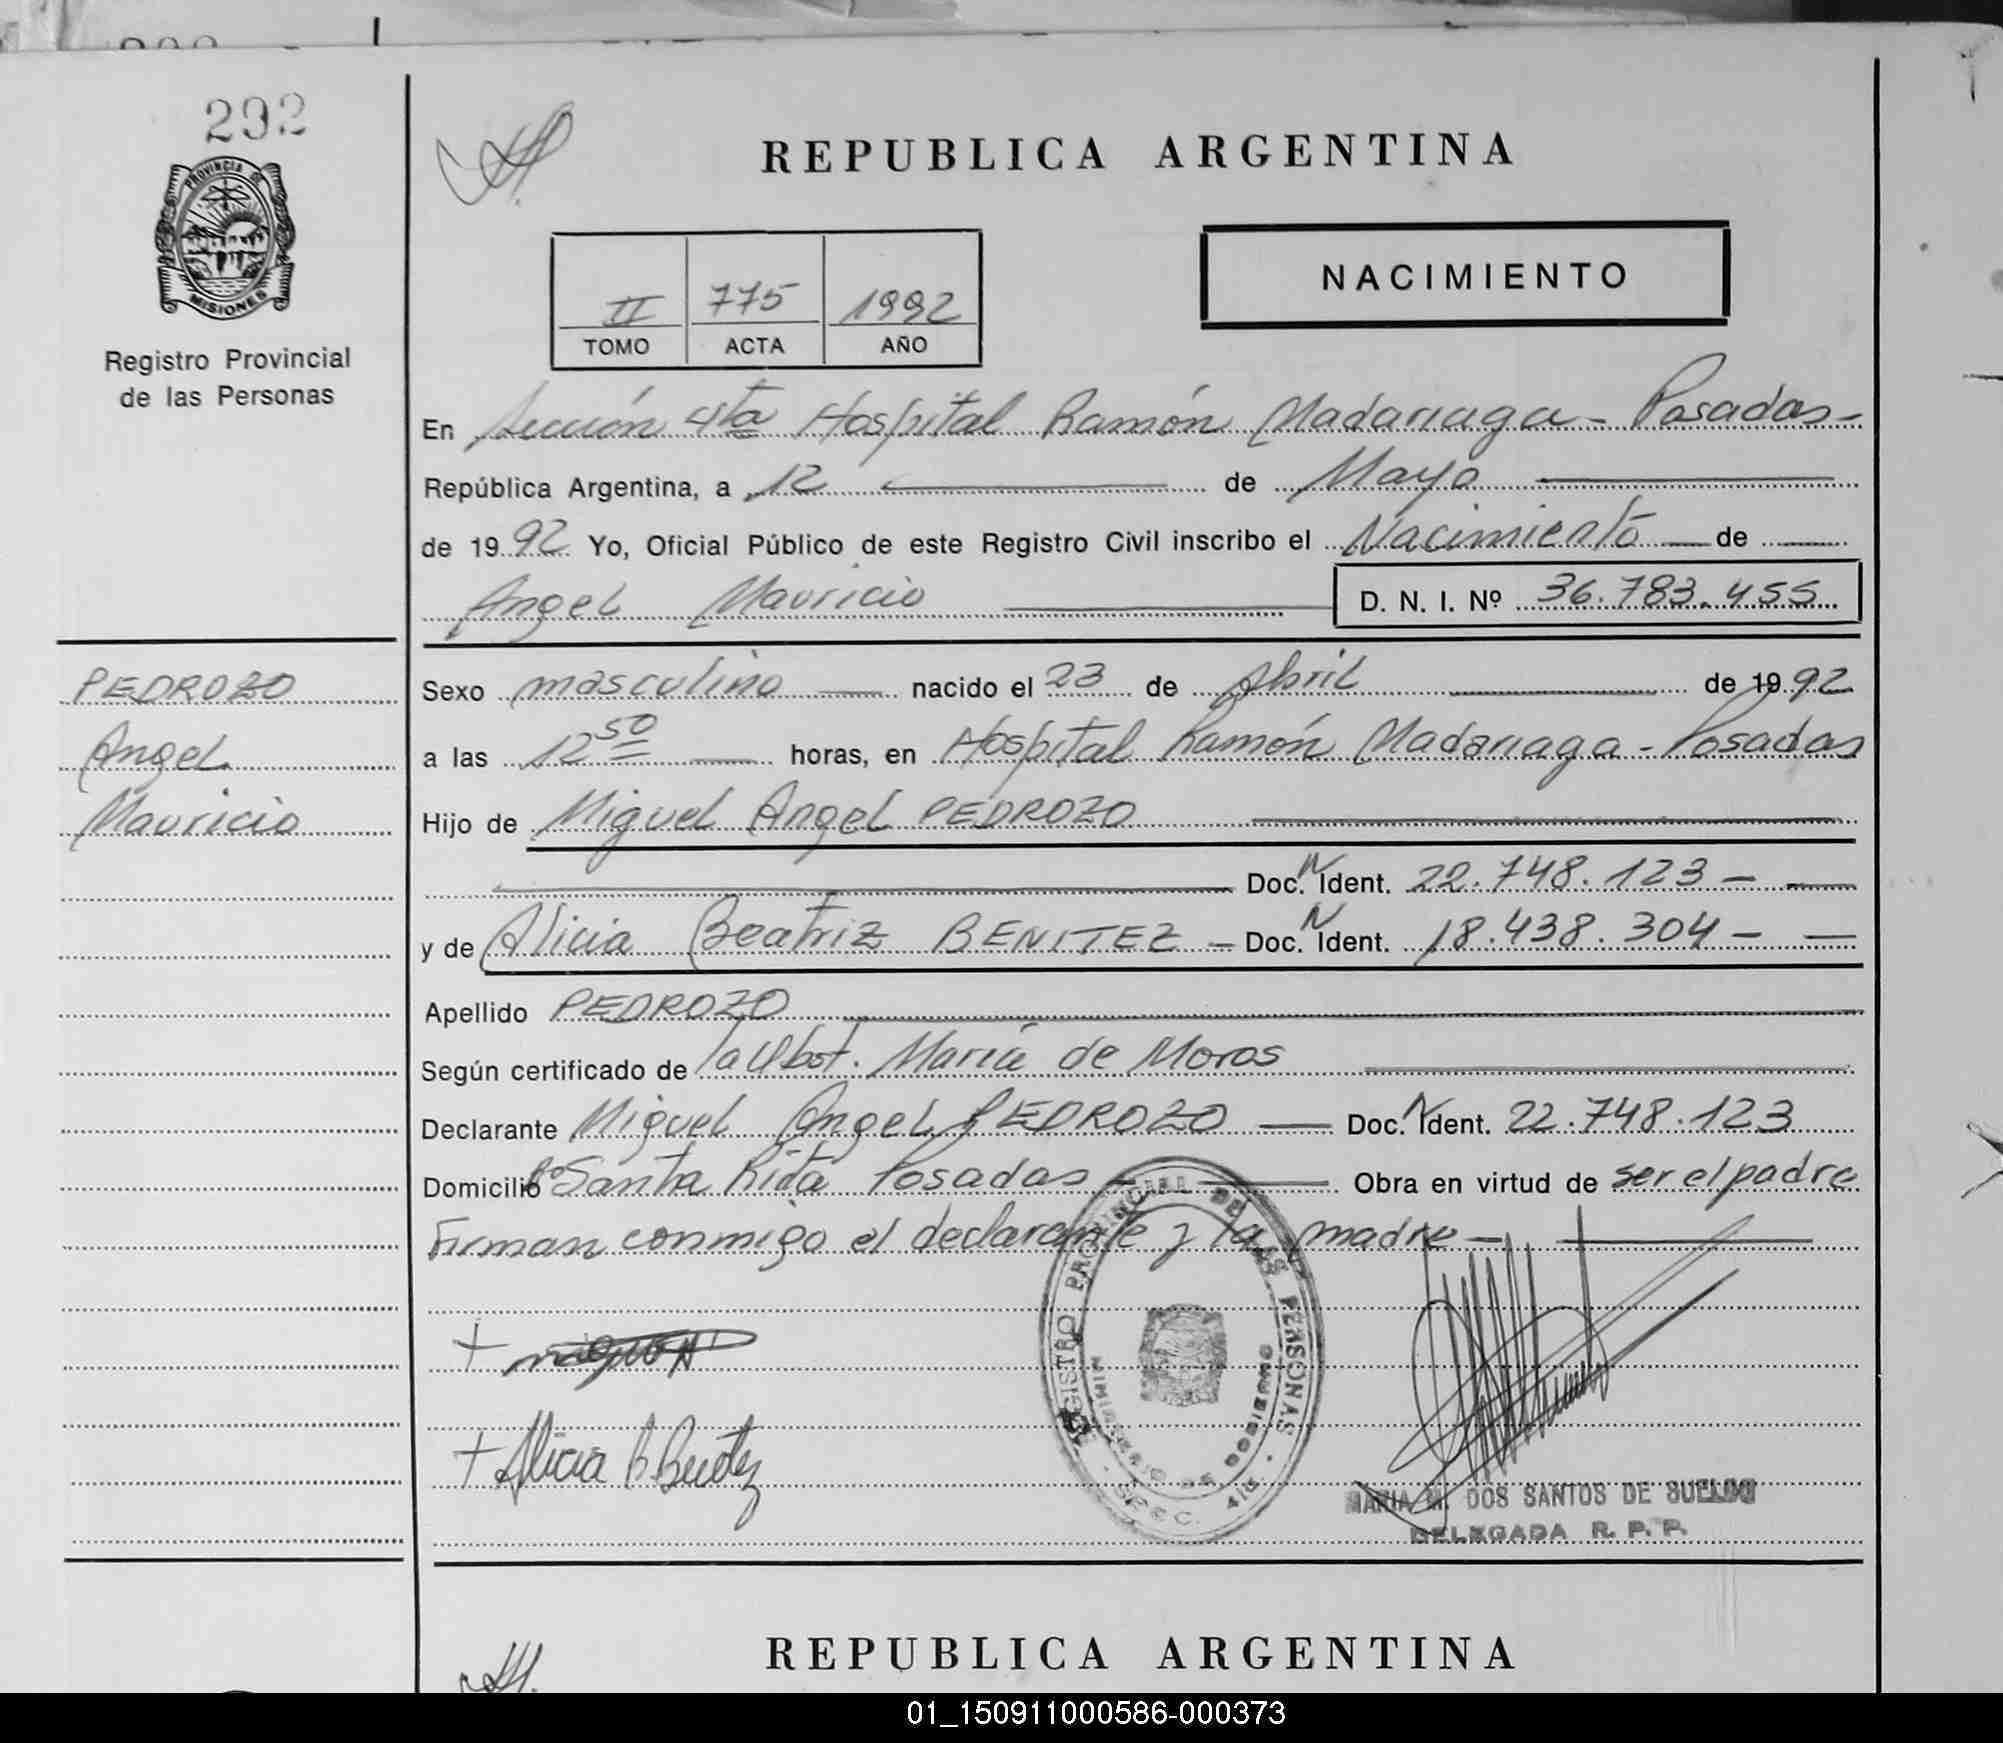 292
PROVINCIA DE
MISIONES
Registro Provincial
de las Personas
REPUBLICA ARGENTINA
II 775 1992
TOMO ACTA AÑO
NACIMIENTO
En Sección 4ta Hospital Ramón Madariaga - Posadas -
República Argentina, a 12 de Mayo
de 1992 Yo, Oficial Público de este Registro Civil inscribo el Nacimiento de
Angel Mauricio D. N. I. Nº 36.783.455
PEDROZO
Angel
Mauricio
Sexo masculino nacido el 23 de Abril de 1992
a las 12 50 horas, en Hospital Ramón Madariaga - Posadas
Hijo de Miguel Angel PEDROZO
Doc. N Ident. 22.748.123 -
y de Alicia Beatriz BENITEZ - Doc. N Ident. 18.438.304 -
Apellido PEDROZO
Según certificado de la Obst. Maria de Moros
Declarante Miguel Angel PEDROZO Doc. N Ident. 22.748.123
Domicilio Bº Santa Rita Posadas Obra en virtud de ser el padre
Firman conmigo el declarante y la madre -
REGISTRO PROVINCIAL DE LAS PERSONAS
MINISTERIO DE GOBIERNO
SECC. 4ta
+ Alicia B. Benitez
MARIA M. DOS SANTOS DE SUELDO
DELEGADA R. P. P.
REPUBLICA ARGENTINA
01_150911000586-000373